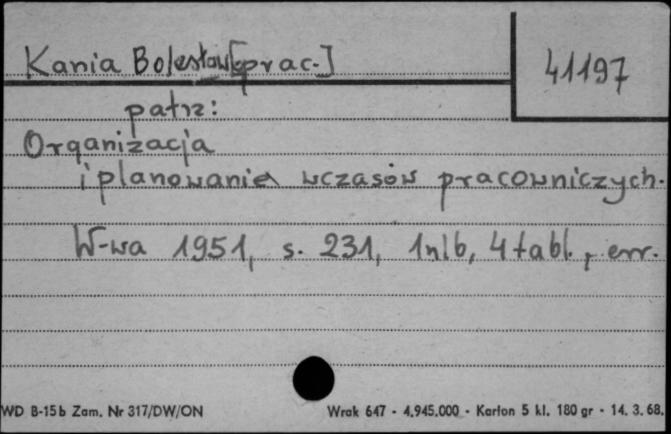 Kania Bolesław [oprac.]
41197
patrz:
Organizacja
i planowanie wczasów pracowniczych.
W-wa 1951, s. 231, 1nlb, 4 tabl., err.
WD B-15b Zam. Nr 317/DW/ON
Wrak 647 - 4.945.000 - Karton 5 kl. 180 gr - 14. 3. 68.